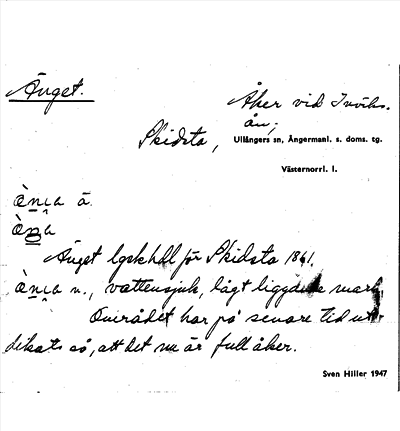 Änget.
Åker vid Inviks-
ån,
Skidsta, Ullångers sn, Ångermanl. s. doms. tg.
Västernorrl. l.
ä.
Änget lgskhdl för Skidsta 1861.
n., vattensjuk, lågt liggande mark.
Området har på senare tid ut-
dikats så, att det nu är full åker.
Sven Hiller 1947